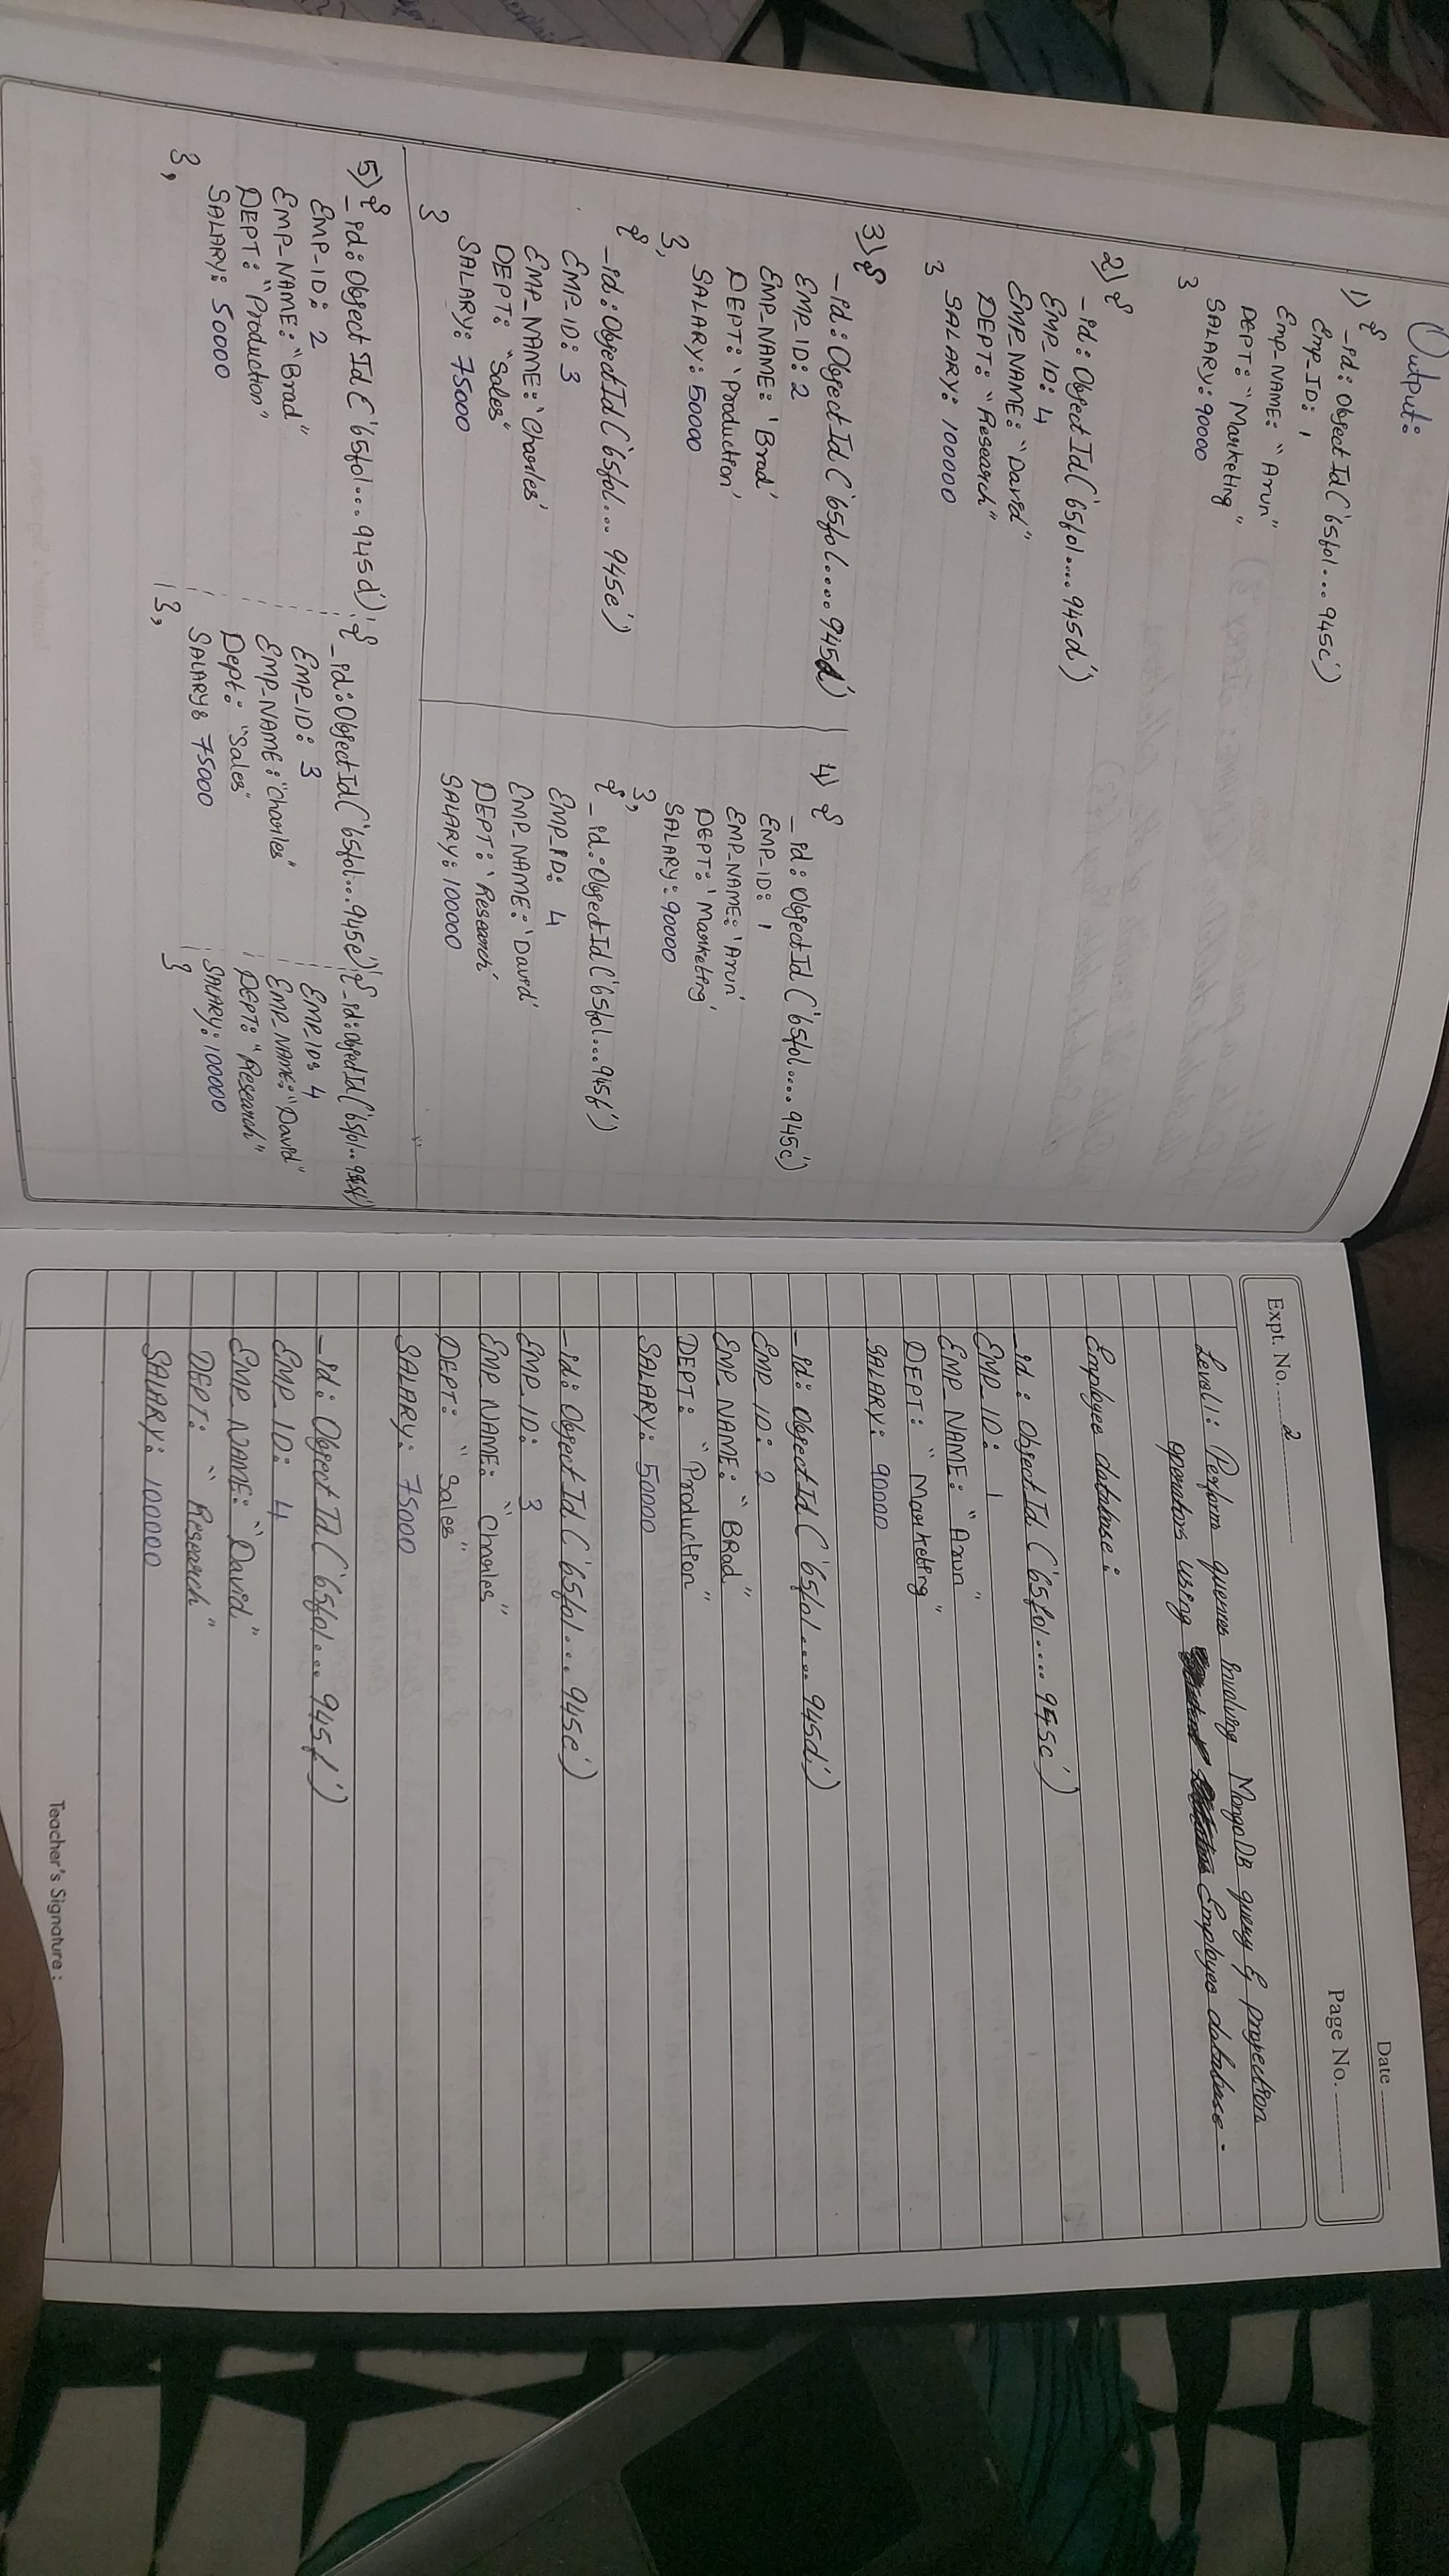 Output:
1) {
_id: ObjectId('65f01...945c')
Emp_ID: 1
Emp_NAME: "Arun"
DEPT: "Marketing"
SALARY: 90000
}
2) {
_id: ObjectId('65f01....945d')
EMP_ID: 4
EMP_NAME: "David"
DEPT: "Research"
SALARY: 100000
}
3) {
_id: ObjectId('65f01....945d')
EMP_ID: 2
EMP_NAME: 'Brad'
DEPT: 'Production'
SALARY: 50000
},
{
_id: ObjectId('65f01... 945e')
EMP_ID: 3
EMP_NAME: 'Charles'
DEPT: "Sales"
SALARY: 75000
}
4) {
_id: ObjectId('65f01.... 945c')
EMP_ID: 1
EMP_NAME: 'Arun'
DEPT: 'Marketing'
SALARY: 90000
},
{ _id: ObjectId('65f01...945f')
EMP_ID: 4
EMP_NAME: 'David'
DEPT: 'Research'
SALARY: 100000
5) {
_id: ObjectId('65f01... 945d')
EMP-ID: 2
EMP-NAME: "Brad"
DEPT: "Production"
SALARY: 50000
},
{
_id: ObjectId('65f01...945e')
EMP_ID: 3
EMP-NAME: "Charles"
Dept: "Sales"
SALARY: 75000
},
{ _id: ObjectId('65f01..945f')
EMP_ID: 4
EMP_NAME: "David"
DEPT: "Research"
SALARY: 100000
}
Date
Page No.
Expt. No. 2
Level 1: Perform queries involving MongoDB query & projection
operators using Employee database.
Employee database:
_id : ObjectId ('65f01.... 945c')
EMP_ID: 1
EMP_NAME: "Arun"
DEPT: "Marketing"
SALARY: 90000
_id: ObjectId ('65f01.... 945d')
EMP_ID: 2
EMP_NAME: "BRad"
DEPT: "Production"
SALARY: 50000
_id: ObjectId ('65f01... 945e')
EMP_ID: 3
EMP_NAME: "Charles"
DEPT: "Sales"
SALARY: 75000
_id: ObjectId ('65f01... 945f')
EMP_ID: 4
EMP_NAME: "David"
DEPT: "Research"
SALARY: 100000
Teacher's Signature :